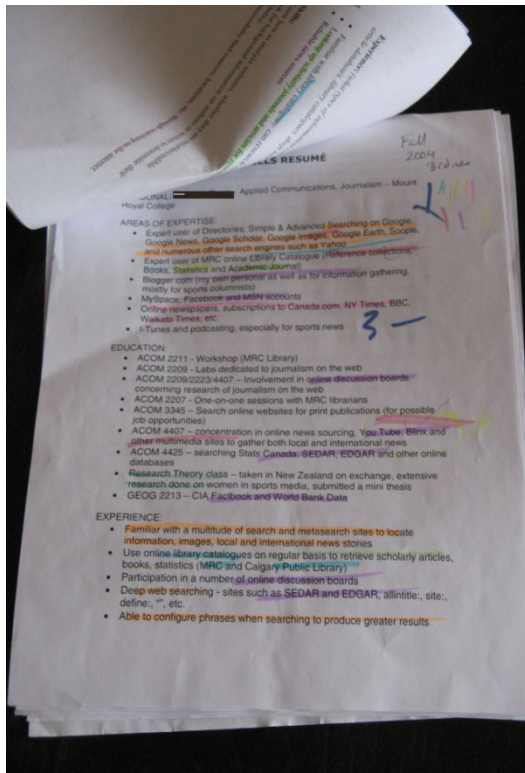 Experience:
article databases, library catalogues,
Familiar with library catalogues
Looking up scholarly journals and articles for
Reliable news sources
Fall
2004
3rd
RESUMÉ
Applied Communications, Journalism – Mount
Royal College
AREAS OF EXPERTISE:
• Expert user of Directories, Simple & Advanced Searching on Google,
Google News, Google Scholar, Google Images, Google Earth, Soople,
and numerous other search engines such as Yahoo
• Expert user of MRC online Library Catalogue (Reference collections,
Books, Statistics and Academic Journal)
• Blogger.com (my own personal as well as for information gathering,
mostly for sports columnists)
• MySpace, Facebook and MSN accounts
• Online newspapers, subscriptions to Canada.com, NY Times, BBC,
Waikato Times, etc.
• I-Tunes and podcasting, especially for sports news
3 –
EDUCATION:
• ACOM 2211 - Workshop (MRC Library)
• ACOM 2209 - Labs dedicated to journalism on the web
• ACOM 2209/2223/4407 – Involvement in online discussion boards
concerning research of journalism on the web
• ACOM 2207 - One-on-one sessions with MRC librarians
• ACOM 3345 – Search online websites for print publications (for possible
job opportunities)
• ACOM 4407 – concentration in online news sourcing, You Tube, Blinx and
other multimedia sites to gather both local and international news
• ACOM 4425 – searching Stats Canada, SEDAR, EDGAR and other online
databases
• Research Theory class – taken in New Zealand on exchange, extensive
research done on women in sports media, submitted a mini thesis
• GEOG 2213 – CIA Factbook and World Bank Data
EXPERIENCE:
• Familiar with a multitude of search and metasearch sites to locate
information, images, local and international news stories
• Use online library catalogues on regular basis to retrieve scholarly articles,
books, statistics (MRC and Calgary Public Library)
• Participation in a number of online discussion boards
• Deep web searching - sites such as SEDAR and EDGAR, allintitle:, site:,
define:, "", etc.
• Able to configure phrases when searching to produce greater results